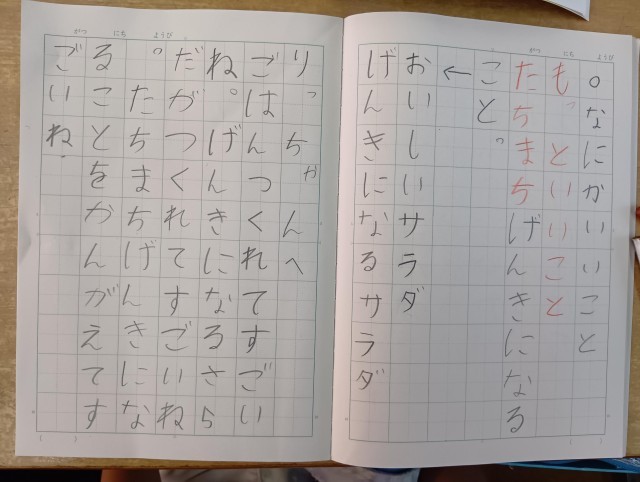 がつ にち ようび
○なにかいいこと
もっといいこと
たちまちげんきになる
こと。
←
おいしいサラダ
げんきになるサラダ
がつ にち ようび
りっちゃんへ
ごはんつくれてすごい
ね。げんきになるさら
だがつくれてすごいね
。たちまちげんきにな
ることをかんがえてす
ごいね